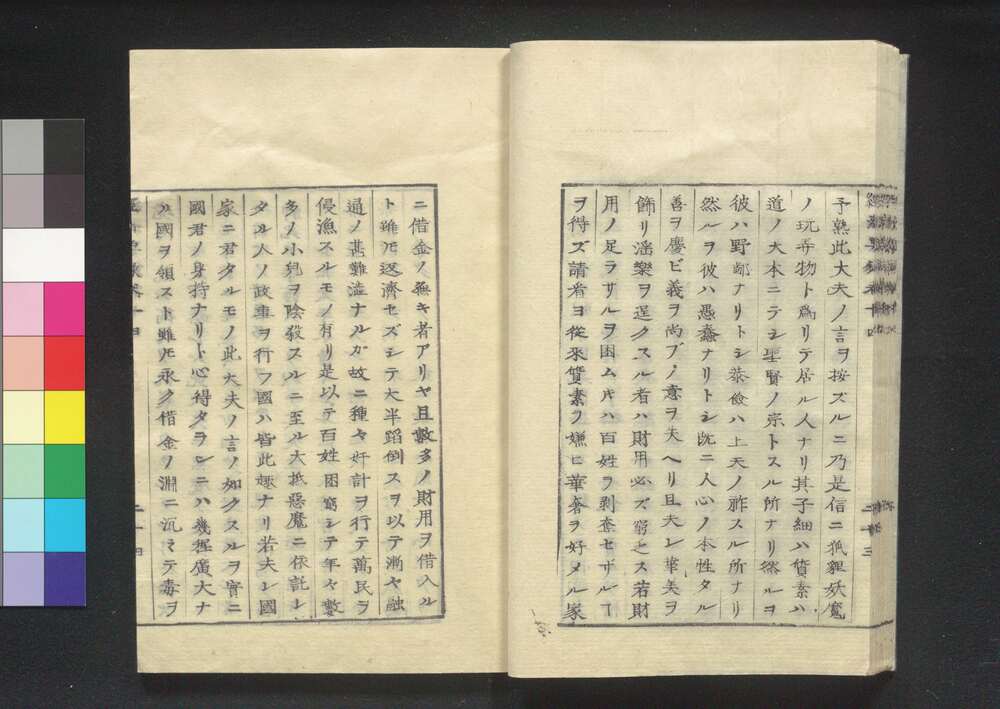 予熟此大夫ノ言ヲ按ズルニ乃是信ニ狐貍妖魔
ノ玩弄物ト爲リテ居ル人ナリ其子細ハ質素ハ
道ノ大本ニシテ聖賢ノ宗トスル所ナリ然ルヲ
彼ハ野鄙ナリトシ恭儉ハ上天ノ祚スル所ナリ
然ルヲ彼ハ愚蠢ナリトシ既ニ人心ノ本性タル
善ヲ慶ビ義ヲ尚ブノ意ヲ失ヘリ且夫レ華美ヲ
飾リ滛樂ヲ逞クスル者ハ財用必ズ窮乏ス若財
用ノ足ラザルヲ困ム片ハ百姓ヲ剥査セザルヿ
ヲ得ズ請看ヨ從來質素ヲ嫌ヒ華奢ヲ好メル家
ニ借金ノ無キ者アリヤ且數多ノ財用ヲ借入ル
ト雖𪜈返濟セズシテ大半蹈倒スヲ以テ漸々融
通ノ甚難澁ナルガ故ニ種々奸計ヲ行テ萬民ヲ
侵漁スルモノ有リ是以テ百姓困窮シテ年々數
多ノ小兒ヲ陰殺スルニ至ル大抵惡魔ニ依託レ
タル人ノ政事ヲ行フ國ハ皆此趣ナリ若夫レ國
家ニ君タルモノ此大夫ノ言ノ如クスルヲ實ニ
國君ノ身持ナリト心得タランニハ幾程廣大ナ
ル國ヲ領スト雖𪜈永ク借金ノ淵ニ沉ミテ毒ヲ